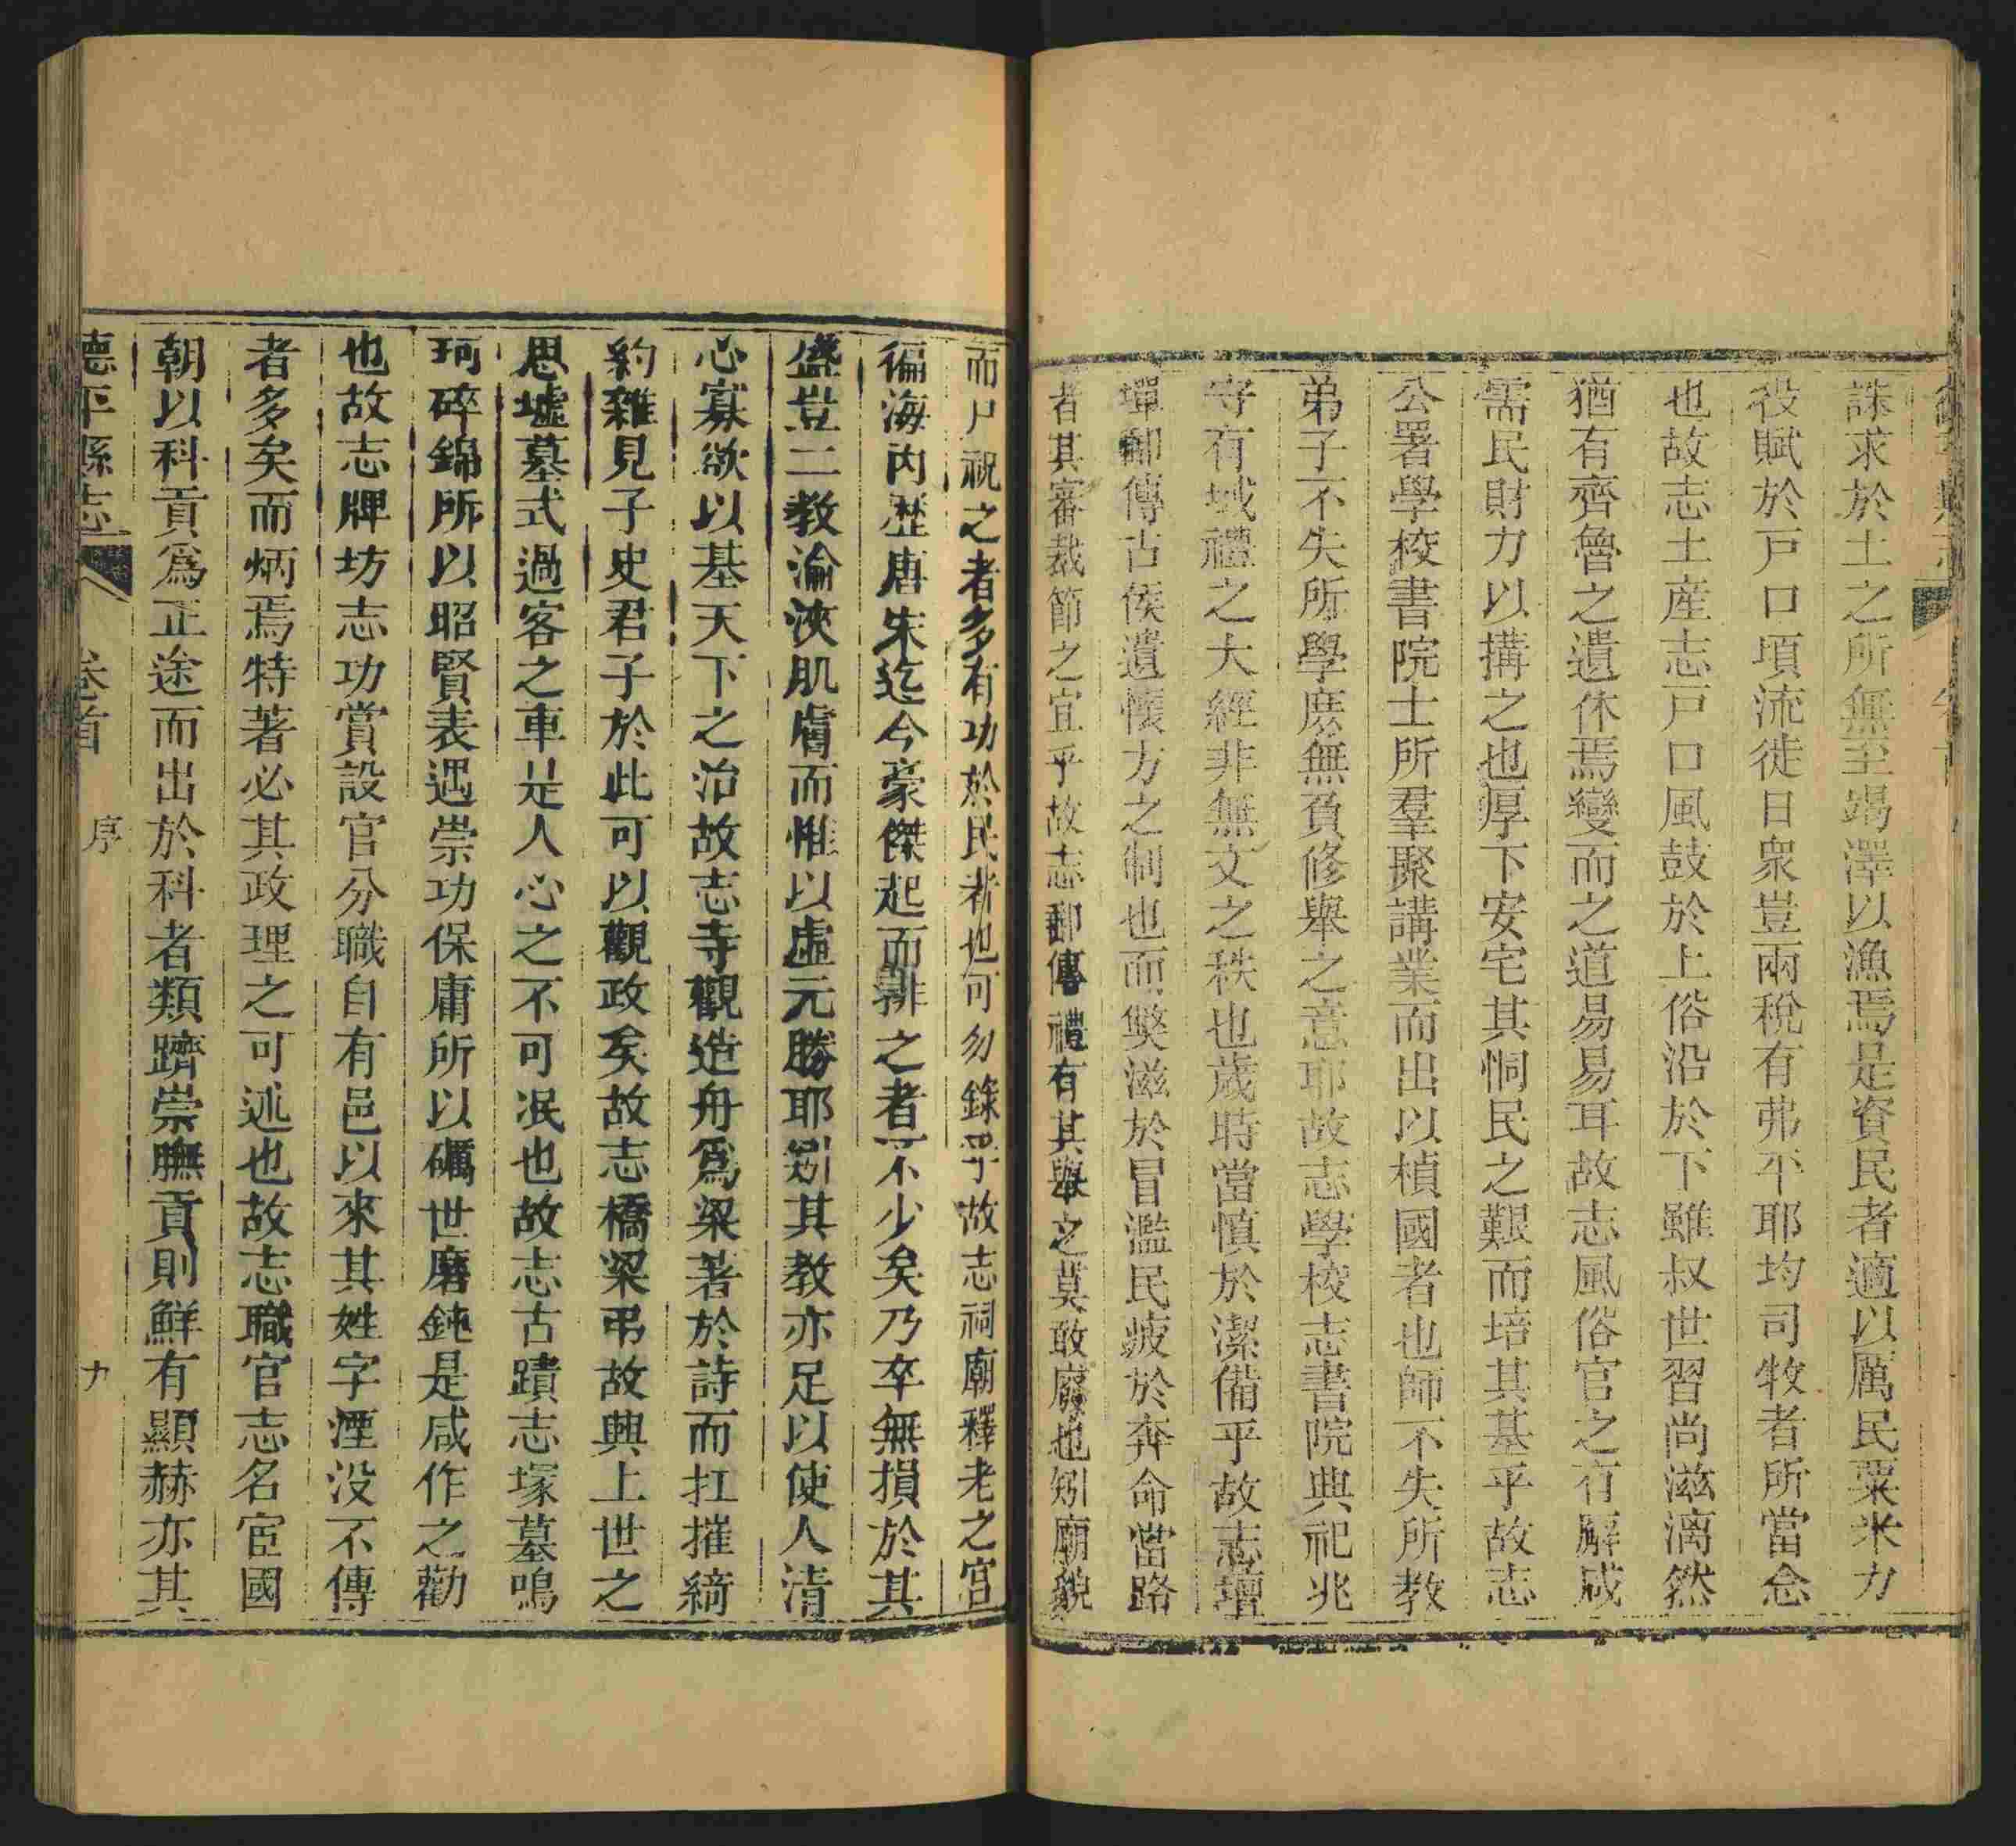 誅求於土之所無至竭澤以漁焉是資民者適以厲民粟米力
役賦於戸口項流徙日衆豈兩稅有弗平耶均司牧者所當念
也故志土産志戸口風鼓於上俗沿於下雖叔世習尚滋漓然
猶有齊魯之遺休焉變而之道易易耳故志風俗官之有廨咸
需民財力以搆之也厚下安宅其恫民之艱而培其基乎故志
公署學校書院士所羣聚講業而出以楨國者也師不失所教
弟子不失所學庶無負修舉之意耶故志學校志書院典祀兆
守有域禮之大經非無文之秩也歲時當慎於潔備乎故志壇
墠郵傳古矦遺懷方之制也而獘滋於冒濫民疲於奔命當路
者其審裁節之宜乎故志郵傳禮有其舉之莫敢廢也矧廟貌
而尸祝之者多有功於民者也可勿錄乎故志祠廟釋老之宮
徧海内歴唐宋迄今豪傑起而排之者不少矣乃卒無損於其
盛豈二教淪浹肌膚而惟以虛元勝耶矧其教亦足以使人清
心寡欲以基天下之治故志寺觀造舟爲梁著於詩而扛摧綺
約雜見子史君子於此可以觀政矣故志橋梁弔故興上世之
思墟墓式過客之車是人心之不可泯也故志古蹟志塚墓鳴
珂碎錦所以昭賢表遇崇功保庸所以礪世磨鈍是咸作之勸
也故志牌坊志功賞設官分職自有邑以來其姓字湮没不傳
者多矣而炳焉特著必其政理之可述也故志職官志名宦國
朝以科貢爲正途而出於科者類躋崇膴貢則鮮有顯赫亦其
德平縣志 卷首 序 九